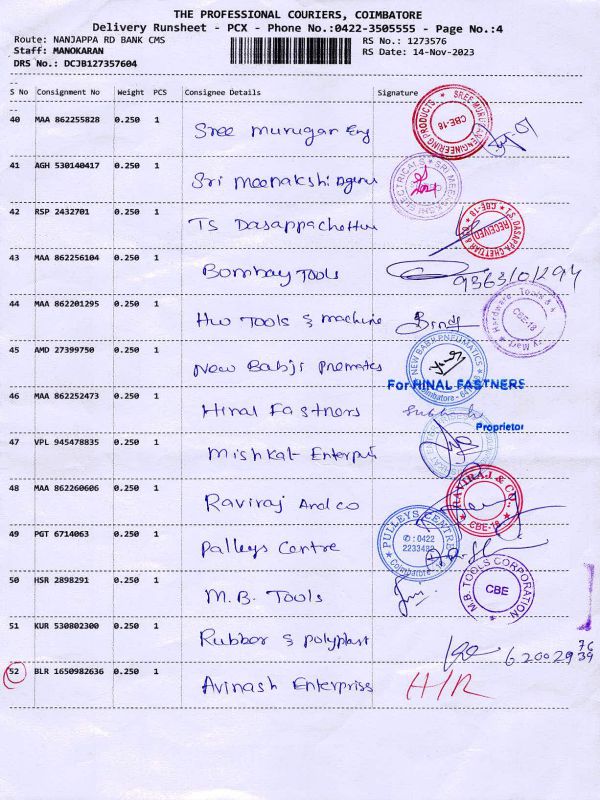 THE PROFESSIONAL COURIERS, COIMBATORE
Delivery Runsheet - PCX - Phone No.:0422-3505555 - Page No.:4
Route: NANJAPPA RD BANK CMS RS No.: 1273576
Staff: MANOKARAN RS Date: 14-Nov-2023
DRS No.: DCJB127357604
S No Consignment No Weight PCS Consignee Details Signature
40 MAA 862255828 0.250 1 Sree Murugan Eng
SREE MURUGAN ENGINEERING PRODUCTS CBE-18
41 AGH 530140417 0.250 1 Sri Meenakshi
SRI MEENAKSHI ELECTRICALS
42 RSP 2432701 0.250 1 TS Dasappachettiar
T.S. DASAPPA CHETTIAR CBE-18 RECEIVED
43 MAA 862256104 0.250 1 Bombay Tools 9363101294
44 MAA 862201295 0.250 1 HW Tools & machine
Hardware Tools & Mart CBE-18
45 AMD 27399750 0.250 1 New Babji pnematics
NEW BABJI PNEUMATICS Coimbatore
For HINAL FASTNERS
46 MAA 862252473 0.250 1 Hinal Fastners
Proprietor
47 VPL 945478835 0.250 1 Mishkat Enterpri
48 MAA 862260606 0.250 1 Raviraj And co
RAVIRAJ & CO. CBE-18
49 PGT 6714063 0.250 1 Palleys Centre
PULLEYS CENTRE ✆ : 0422 2233482 Coimbatore
50 HSR 2898291 0.250 1 M.B. Tools
M.B. TOOLS CORPORATION CBE
51 KUR 530802300 0.250 1 Rubber & polyplast
6200297639
52 BLR 1650982636 0.250 1 Avinash Enterpriss H/R